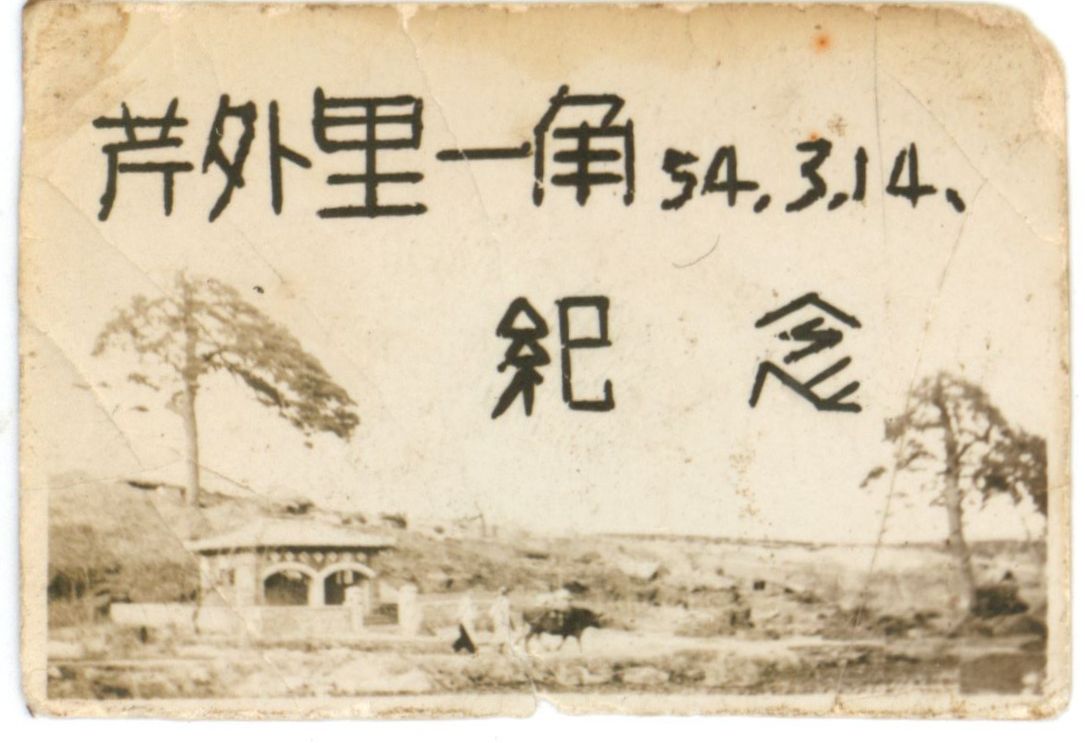 芹外里一角 54.3.14.
紀念